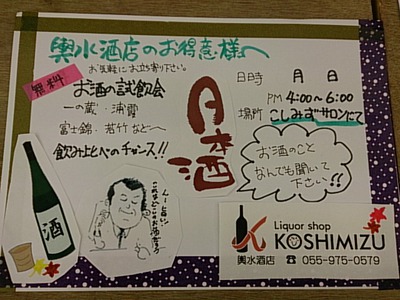 輿水酒店のお得意様へ
お気軽にお立ち寄り下さい。
無料
お酒の試飲会
一の蔵・浦霞
富士錦・若竹など〜
飲み比べのチャンス!!
日本酒
日時 月 日
PM 4:00〜6:00
場所 こしみずサロンにて
お酒のこと
なんでも聞いて
下さい!!
酒
Liquor shop
KOSHIMIZU
輿水酒店 ☎ 055-975-0579